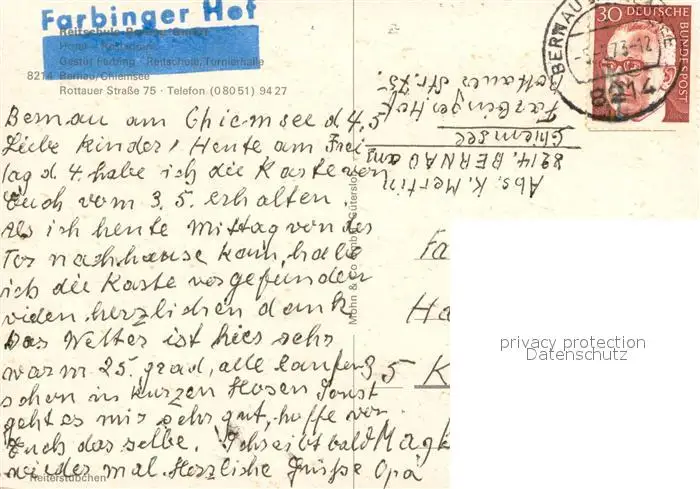 Farbinger Hof
Hotel - Restaurant
Gestüt Farbing - Reitschule, Turnierhalle
8214 Bernau/Chiemsee
Rottauer Straße 75 · Telefon (0 80 51) 94 27
Bernau am Chiemsee d 4.5
Liebe Kinder! Heute am Frei
tag d 4. habe ich die Karte von
Euch vom 3. 5. erhalten.
Als ich heute Mittag von der
nachhause kam, habe
ich die Karte vorgefunden
vielen herzlichen dank
Das Wetter ist hier sehr
warm 25. grad, alle laufen
schon in kurzen Hosen sonst
geht es mir sehr gut, hoffe von
Euch das selbe. Schreibt bald
wieder mal. Herzliche Grüsse Opa
Reiterstübchen
Mohn & Co GmbH Gütersloh
Abs. K. Mertin
8214. BERNAU am
Chiemsee
Farbinger Hof
Rottauer Str. 75.
30 DEUTSCHE BUNDESPOST
BERNAU
73-12
8214
Fa
Ha
5 K
Mag
privacy protection
Datenschutz